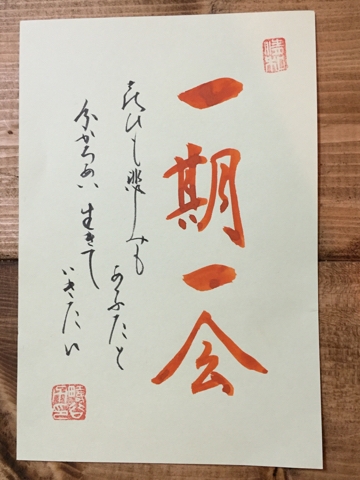 一期一会
喜びも悲しみも
あなたと
分かちあい 生きて
いきたい